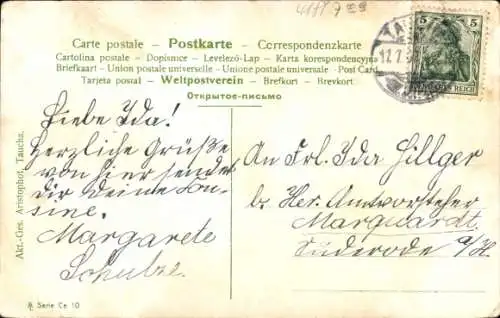 4171 7 E9
Carte postale – Postkarte – Correspondenzkarte
Cartolina postale – Dopisnice – Levelező-Lap – Karta korespondencyjna
Briefkaart – Union postale universelle – Unione postale universale – Post Card
Tarjeta postal – Weltpostverein – Brefkort – Brevkort.
Открытое-письмо
5 5
REICH
17.7.
Liebe Ida!
Herzliche Grüße
von hier sendet
Dir Deine Cou-
sine.
Margarete
Schulze.
An Frl. Ida Hillger
b. Her. Amtvorsteher
Marquardt.
Suderode a/H.
Akt.-Ges. Aristophot, Taucha.
Serie Ce 10